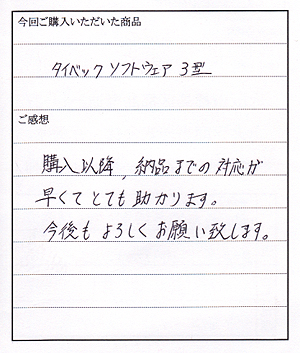 今回ご購入いただいた商品
タイベックソフトウェア 3型
ご感想
購入以降、納品までの対応が
早くてとても助かります。
今後もよろしくお願い致します。